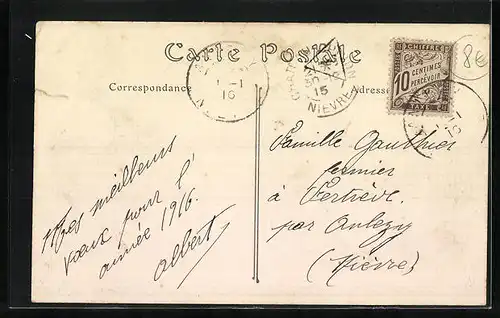 Carte Postale
Correspondance
Adresse
NIEVRE
15
CHIFFRE
10 CENTIMES
À PERCEVOIR
TAXE
8€
1-1
16
Mes meilleurs
vœux pour l'
année 1916.
Albert
Famille Gauthier
fermier
à
par Anlezy
(Nièvre)